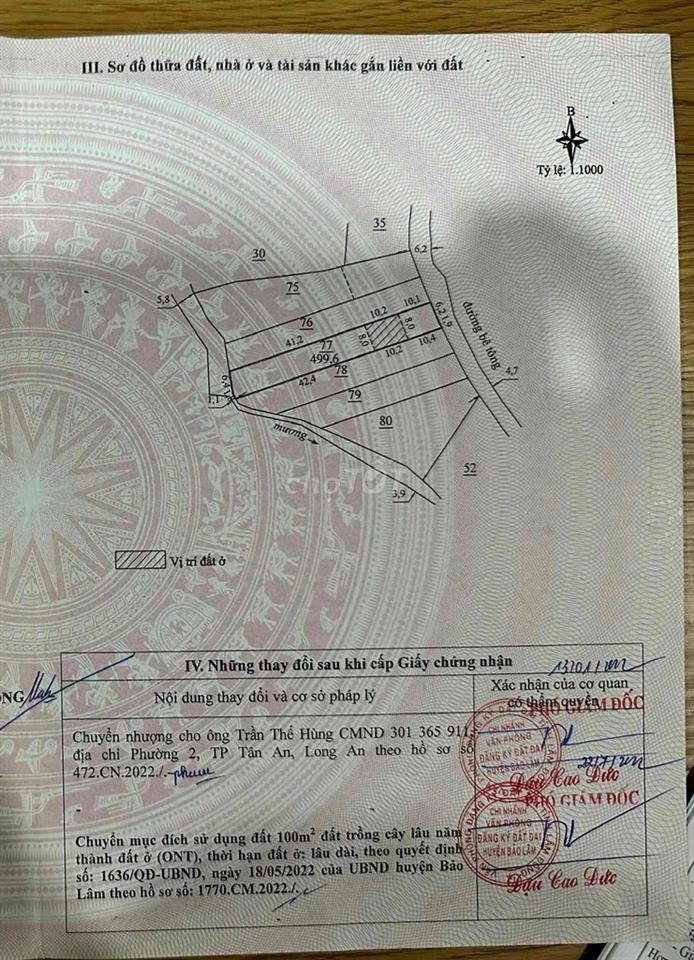 III. Sơ đồ thửa đất, nhà ở và tài sản khác gắn liền với đất
B
Tỷ lệ: 1.1000
35
30
6,2
75
5,8
76
10,2
10,1
6,2
1,9
đường bê tông
41,2
77
499,6
8,0
8,0
10,2
10,4
78
42,4
6,4
1,1
79
4,7
80
mương
52
3,9
chợTỐT
Vị trí đất ở
IV. Những thay đổi sau khi cấp Giấy chứng nhận
Nội dung thay đổi và cơ sở pháp lý
Xác nhận của cơ quan
có thẩm quyền
Chuyển nhượng cho ông Trần Thế Hùng CMND 301 365 911,
địa chỉ Phường 2, TP Tân An, Long An theo hồ sơ số
472.CN.2022./.
PHÓ GIÁM ĐỐC
CHI NHÁNH
VĂN PHÒNG
ĐĂNG KÝ ĐẤT ĐAI
HUYỆN BẢO LÂM
Đậu Cao Đức
Chuyển mục đích sử dụng đất 100m² đất trồng cây lâu năm
thành đất ở (ONT), thời hạn đất ở: lâu dài, theo quyết định
số: 1636/QĐ-UBND, ngày 18/05/2022 của UBND huyện Bảo
Lâm theo hồ sơ số: 1770.CM.2022./.
PHÓ GIÁM ĐỐC
CHI NHÁNH
VĂN PHÒNG
ĐĂNG KÝ ĐẤT ĐAI
HUYỆN BẢO LÂM
Đậu Cao Đức